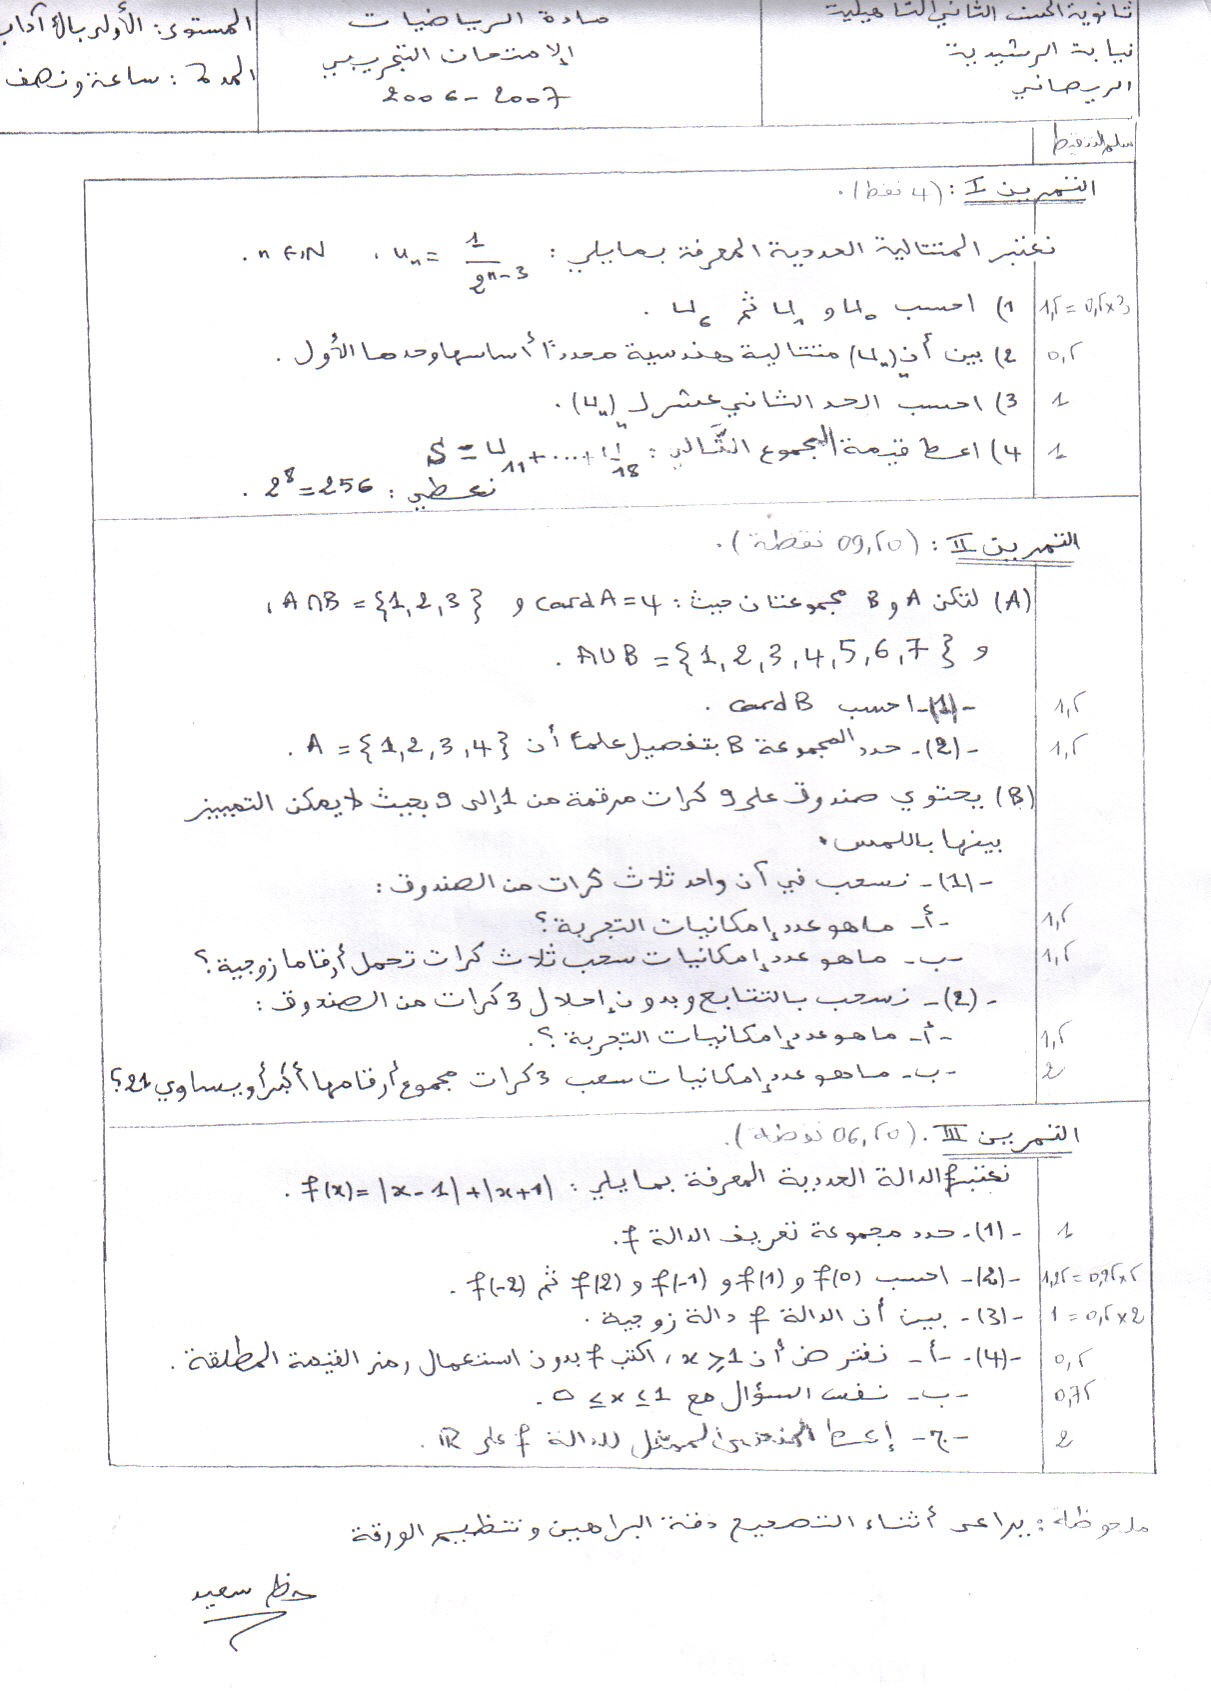 ثانوية الحسن الثاني التأهيلية
نيابة الرشيدية
الريصاني
مادة الرياضيات
الإمتحان التجريبي
2006-2007
المستوى: الأولى باك آداب
المدة: ساعة ونصف
سلم التنقيط
التمرين I: (4 نقط).
نعتبر المتتالية العددية المعرفة بمايلي: u_n = 1/2^{n-3} ، n∈ℕ.
1) احسب u_0 و u_1 ثم u_6. 1,5=0,5×3
2) بين أن (u_n) متتالية هندسية محددًا أساسها وحدها الأول. 0,5
3) احسب الحد الثاني عشر لـ (u_n). 1
4) اعط قيمة المجموع التَّالي: S = u_11 + ... + u_18 1
نعطي: 2^8 = 256.
التمرين II: (09,50 نقطة).
(A) لتكن A و B مجموعتان حيث: cardA=4 و A∩B={1,2,3}،
و A∪B={1,2,3,4,5,6,7}.
-(1)- احسب cardB. 1,5
-(2)- حدد المجموعة B بتفصيل علمًا أن A={1,2,3,4}. 1,5
(B) يحتوي صندوق على 9 كرات مرقمة من 1 إلى 9 بحيث لا يمكن التمييز
بينها باللمس.
-(1)- نسحب في آن واحد ثلاث كرات من الصندوق:
-أ- ماهو عدد إمكانيات التجربة؟ 1,5
-ب- ماهو عدد إمكانيات سحب ثلاث كرات تحمل أرقاما زوجية؟ 1,5
-(2)- نسحب بالتتابع وبدون إحلال 3 كرات من الصندوق:
-أ- ماهو عدد إمكانيات التجربة؟. 1,5
-ب- ماهو عدد إمكانيات سحب 3 كرات مجموع أرقامها أكبر أو يساوي 21؟ 2
التمرين III. (06,50 نقطة).
نعتبر f الدالة العددية المعرفة بمايلي: f(x)=|x-1|+|x+1|.
-(1)- حدد مجموعة تعريف الدالة f. 1
-(2)- احسب f(0) و f(1) و f(-1) و f(2) ثم f(-2). 1,25=0,25×5
-(3)- بين أن الدالة f دالة زوجية. 1=0,5×2
-(4)- -أ- نفترض أن x⩾1، اكتب f بدون استعمال رمز القيمة المطلقة. 0,5
-ب- نفس السؤال مع 0≤x≤1. 0,75
-ج- إعط المنحنى الممثل للدالة f على ℝ. 2
ملحوظة: يراعى أثناء التصحيح دقة البراهين وتنظيم الورقة
حظ سعيد